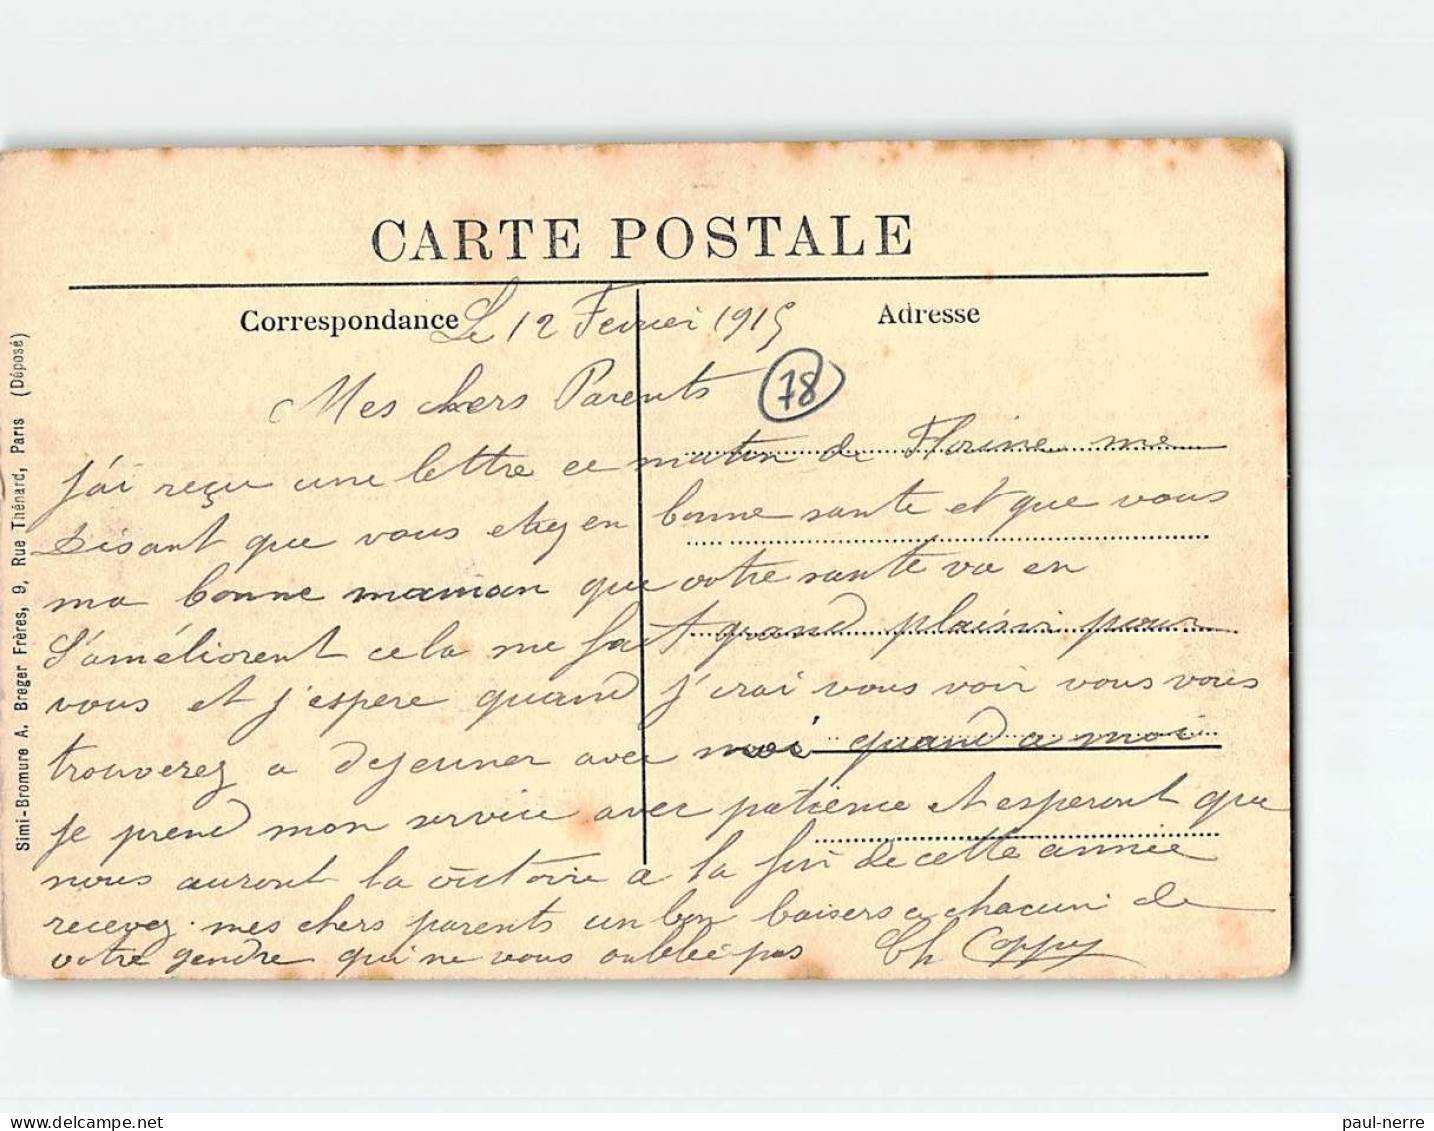 CARTE POSTALE
Correspondance
Adresse
Le 12 Fevrier 1915
78
Mes chers Parents
j'ai reçu une lettre ce matin de Florine me
disant que vous etiez en bonne sante et que vous
ma bonne maman que votre sante va en
s'améliorent cela me fait grand plaisir pour
vous et j'espere quand j'irai vous voir vous vous
trouverez a dejeuner avec moi quand a moi
je prend mon service avec patience et esperont que
nous auront la victoire a la fin de cette année
recevez mes chers parents un bon baisers a chacun de
votre gendre qui ne vous oublie pas Ch Coppy
Simi-Bromure A. Breger Frères, 9, Rue Thénard, Paris (Déposé)
paul-nerre